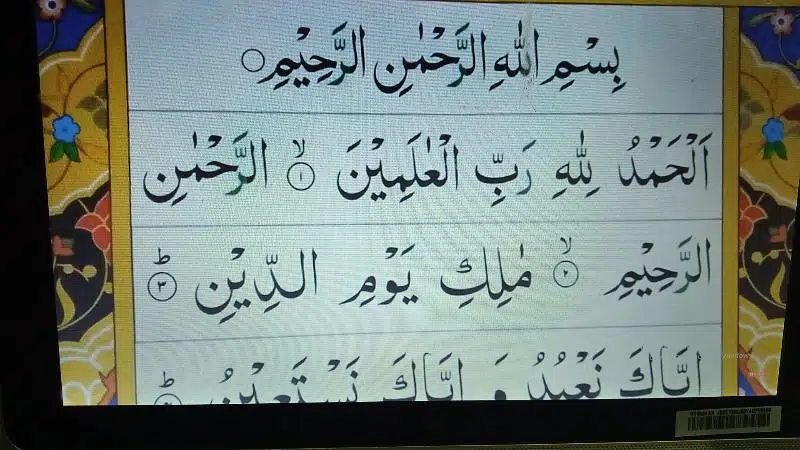 بِسْمِ اللّٰهِ الرَّحْمٰنِ الرَّحِيْمِ ۝
اَلْحَمْدُ لِلّٰهِ رَبِّ الْعٰلَمِيْنَ ۙ‏﴿۱﴾ الرَّحْمٰنِ
الرَّحِيْمِ ۙ‏﴿۲﴾ مٰلِكِ يَوْمِ الدِّيْنِ ؕ‏﴿۳﴾
اِيَّاكَ نَعْبُدُ وَ اِيَّاكَ نَسْتَعِيْنُ ؕ